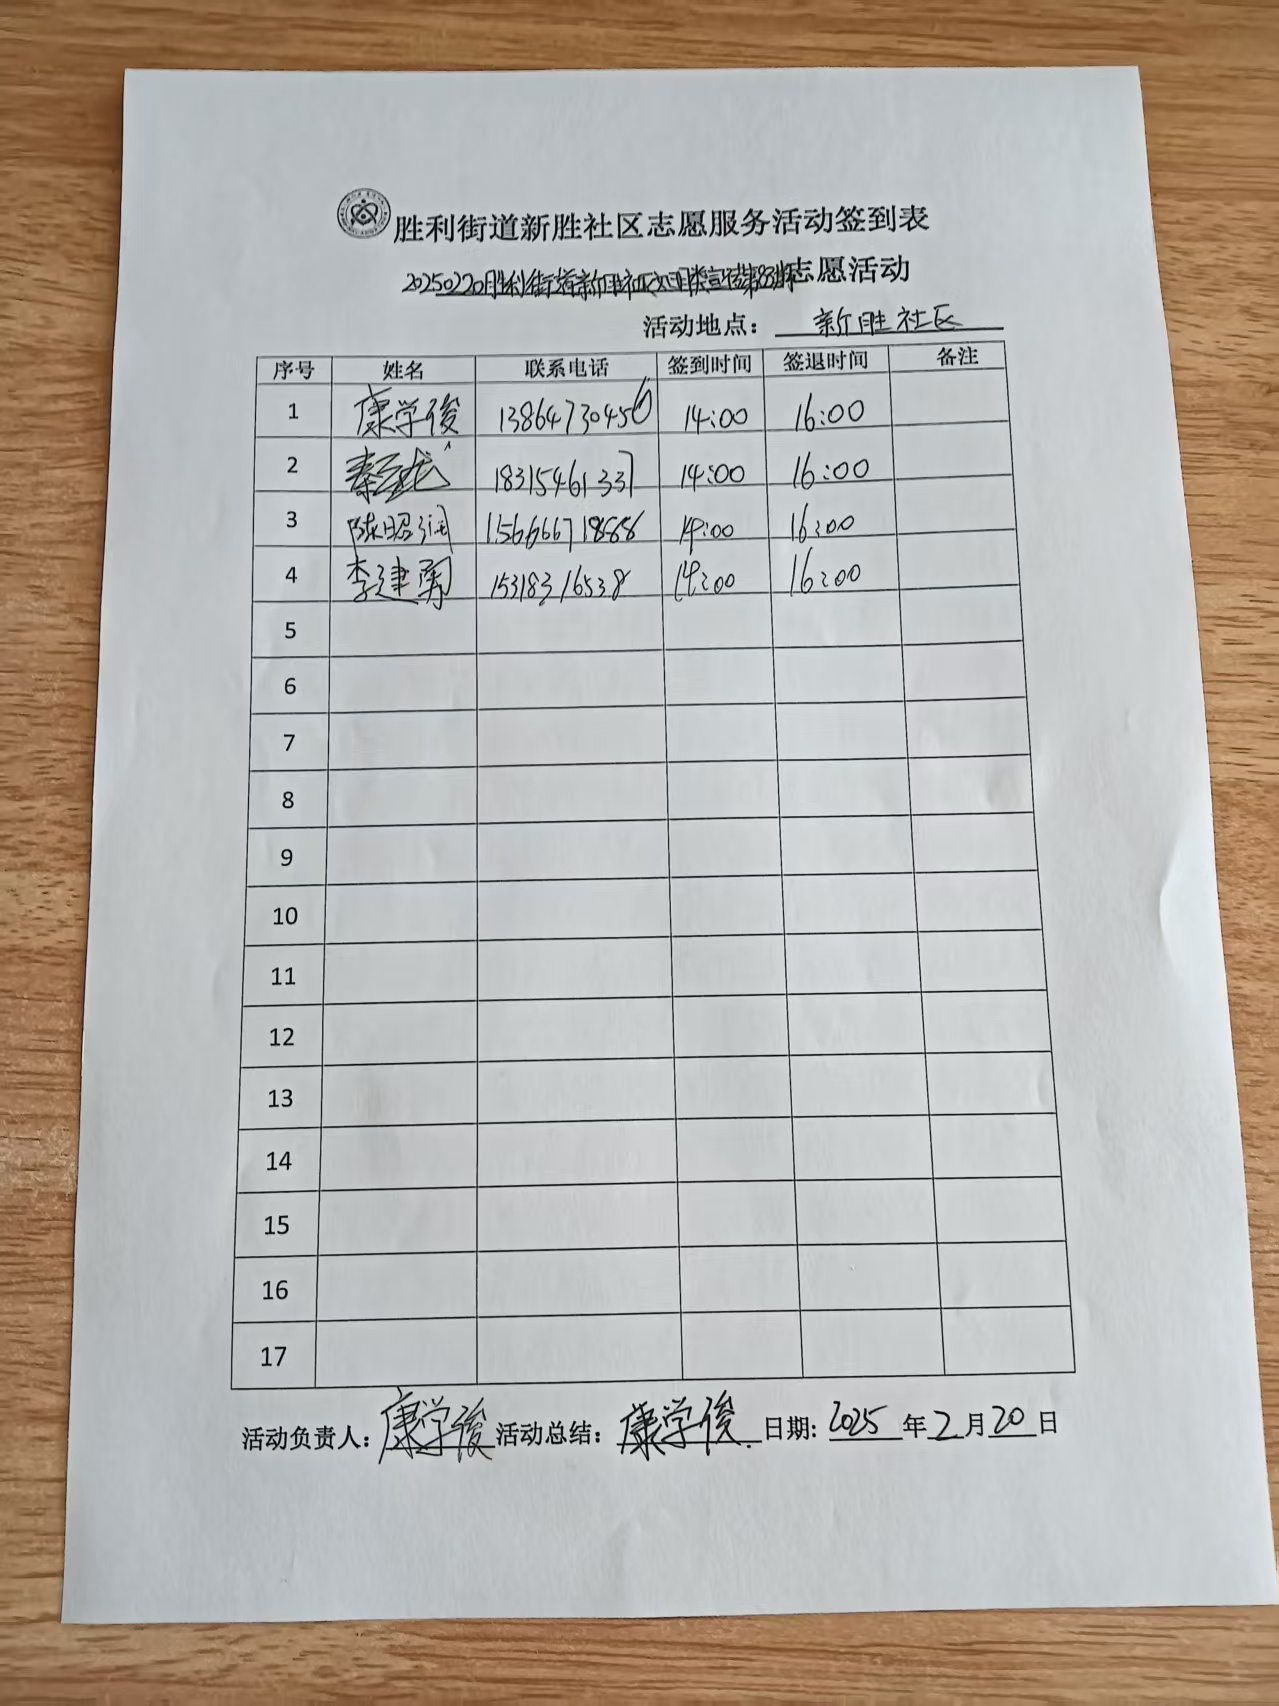 胜利街道新胜社区志愿服务活动签到表
20250220胜利街道新胜社区文明祭宣传第83期志愿活动
活动地点：新胜社区
序号 姓名 联系电话 签到时间 签退时间 备注
1 康学俊 13864730456 14:00 16:00
2 秦 龙 18315461337 14:00 16:00
3 陈昭润 15666718886 14:00 16:00
4 李建勇 15318316538 14:00 16:00
5
6
7
8
9
10
11
12
13
14
15
16
17
活动负责人：康学俊 活动总结：康学俊 日期: 2025 年 2 月 20 日